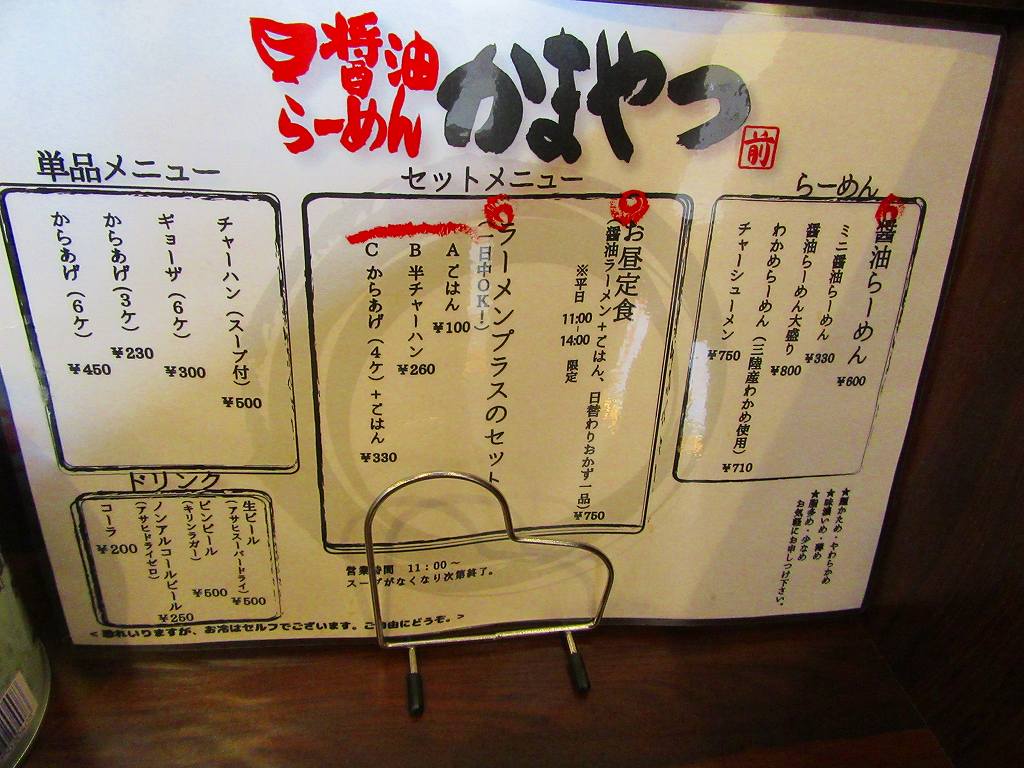 醤油
らーめん
かまやつ
前
らーめん
醤油らーめん
¥600
ミニ醤油らーめん
¥330
醤油らーめん大盛り
¥800
わかめらーめん(三陸産わかめ使用)
¥710
チャーシューメン
¥750
★麺かため・やわらかめ
★味濃いめ・薄め
★脂多め・少なめ
お気軽にお申しつけ下さい。
セットメニュー
お昼定食
醤油ラーメン+ごはん、日替わりおかず一品)
¥750
※平日 11:00-14:00 限定
ラーメンプラスのセット
(一日中OK!)
A ごはん
¥100
B 半チャーハン
¥260
C からあげ(4ケ)+ごはん
¥330
営業時間 11:00~
スープがなくなり次第終了。
単品メニュー
チャーハン(スープ付)
¥500
ギョーザ(6ケ)
¥300
からあげ(3ケ)
¥230
からあげ(6ケ)
¥450
ドリンク
生ビール
(アサヒスーパードライ)
¥500
ビンビール
(キリンラガー)
¥500
ノンアルコールビール
(アサヒドライゼロ)
¥250
コーラ
¥200
<恐れいりますが、お冷はセルフでございます。ご自由にどうぞ。>